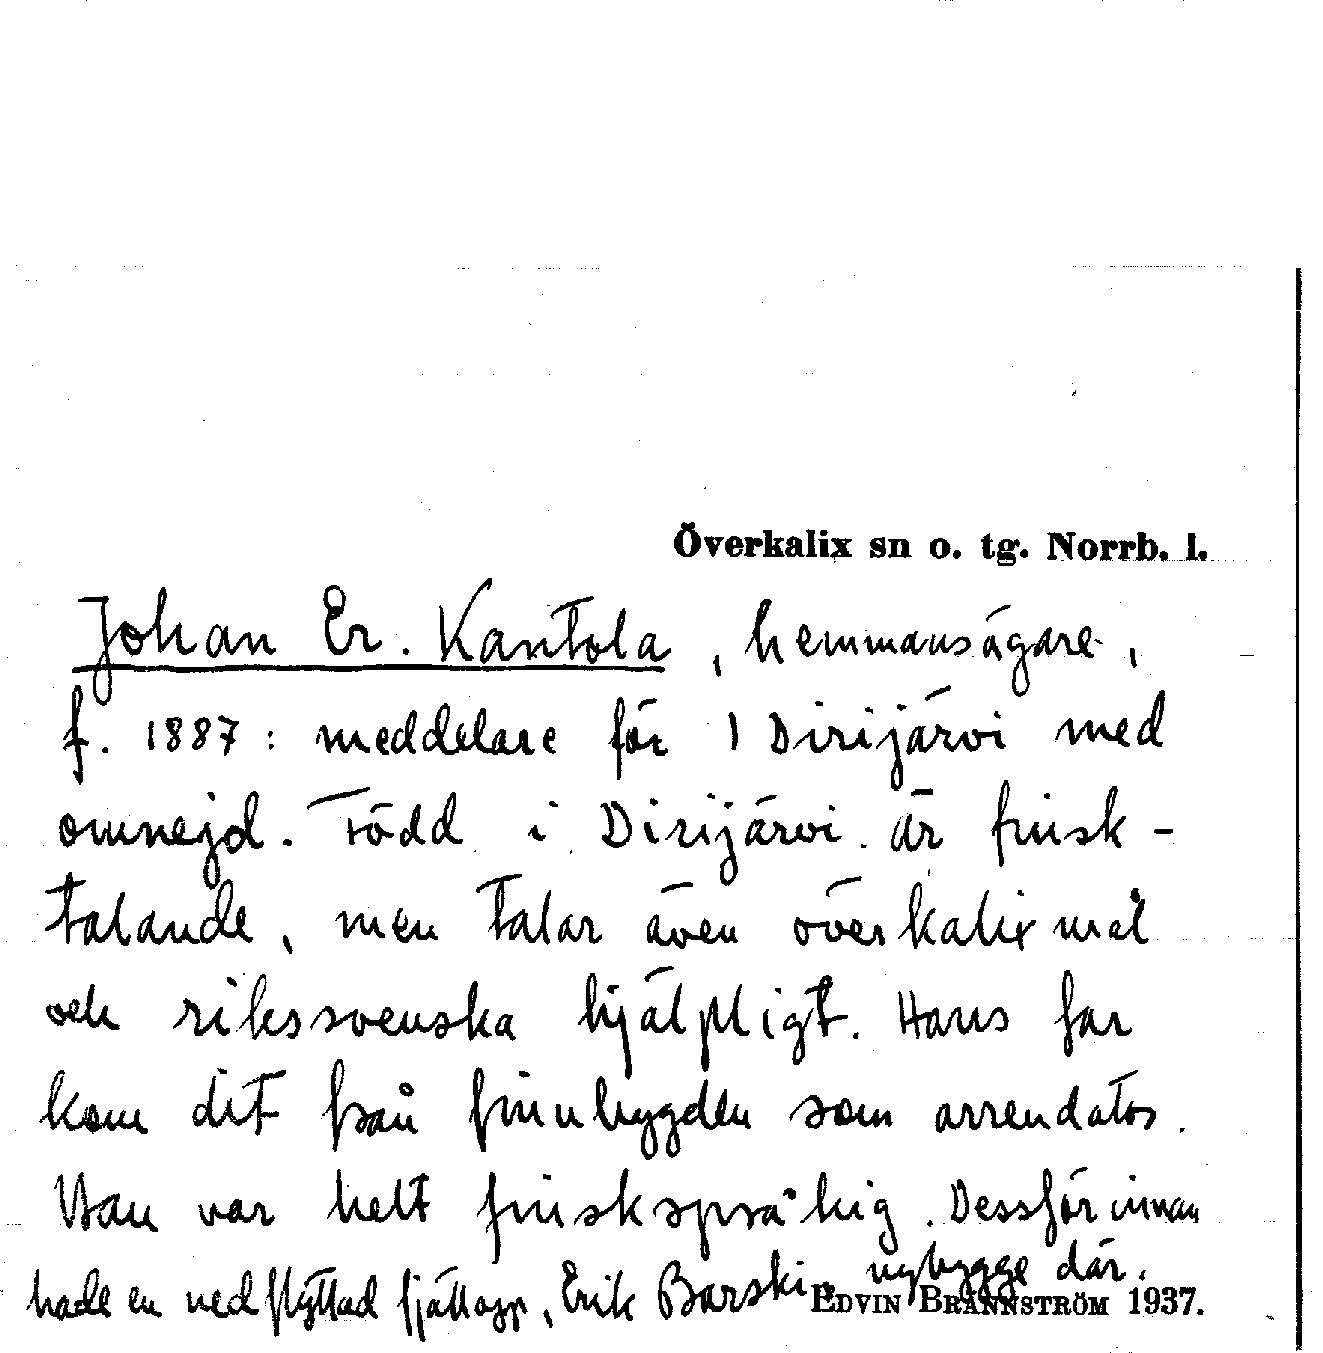 Överkalix sn o. tg. Norrb. l.
Johan Er. Kantola, hemmansägare,
f. 1887: meddelare för Dirijärvi med
omnejd. Född i Dirijärvi. är finsk-
talande, men talar även överkalixmål
och rikssvenska hjälpligt. Hans far
kom dit från finnbygden som arrendator.
Han var helt finskspråkig. Dessförinnan
hade en nedflyttad fjällapp, Erik Barski, nybygge där.
EDVIN BRÄNNSTRÖM 1937.